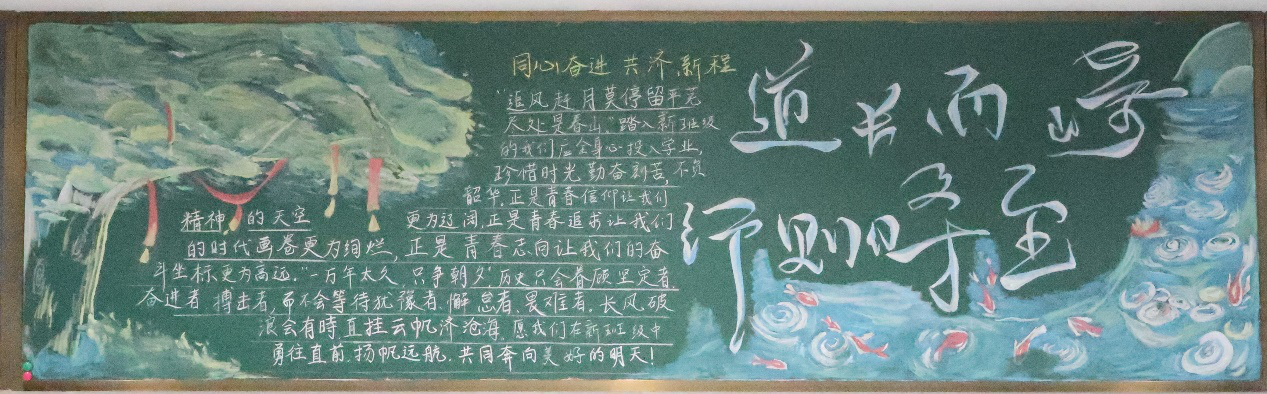 同心奋进 共济新程
"追风赶月莫停留平芜
尽处是春山"踏入新班级
的我们应全身心投入学业,
珍惜时光勤奋刻苦,不负
韶华,正是青春信仰让我们
精神的天空 更为辽阔,正是青春追求让我们
的时代画卷更为绚烂,正是青春志向让我们的奋
斗坐标更为高远."一万年太久 只争朝夕"历史只会眷顾坚定者
奋进者 搏击者,而不会等待犹豫者,懈怠者,畏难者,长风破
浪会有時 直挂云帆济沧海 愿我们在新班级中
勇往直前,扬帆远航,共同奔向美好的明天!
道长而崎
行则 至